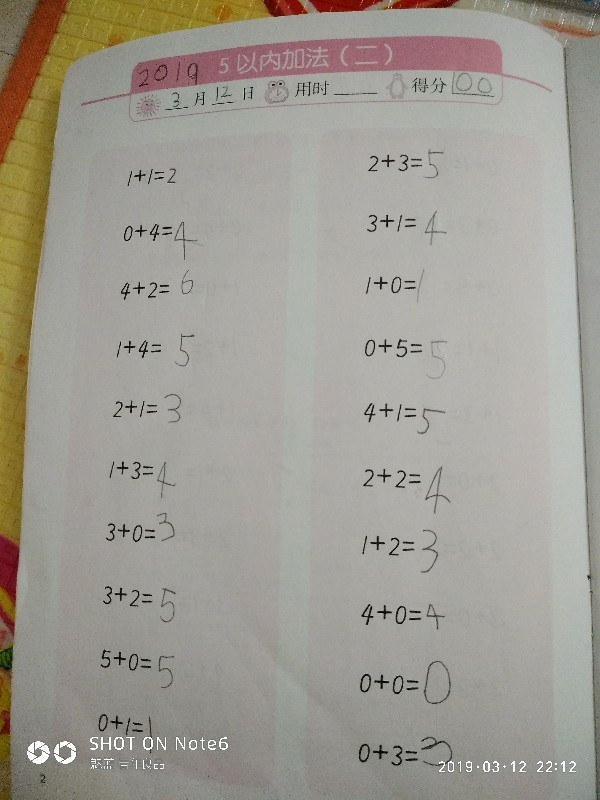 5以内加法（二）
2019
3月12日 用时____ 得分100
1+1=2
0+4=4
4+2=6
1+4=5
2+1=3
1+3=4
3+0=3
3+2=5
5+0=5
0+1=1
2+3=5
3+1=4
1+0=1
0+5=5
4+1=5
2+2=4
1+2=3
4+0=4
0+0=0
0+3=3
2
SHOT ON Note6
魅蓝 三年良品
2019·03·12 22:12